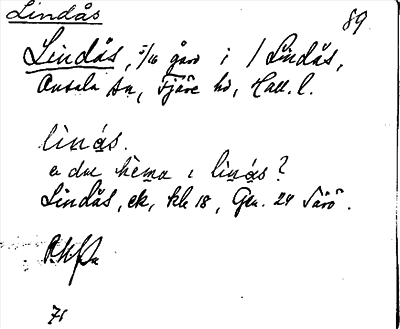 Lindås
89
Lindås, 5/16 gård i / Lindås,
Onsala sn, Fjäre hd, Hall. l.
lìnás.
e du hèma i lìnás?
Lindås, ek, kbl 18, Gen. 24 Särö.
71